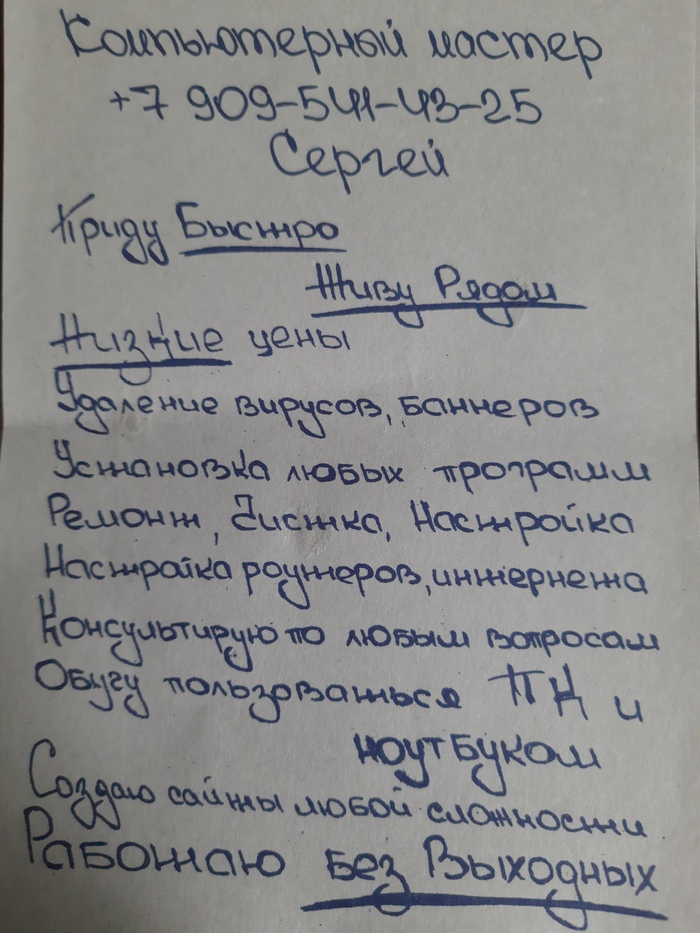 Компьютерный мастер
+7 909-541-43-25
Сергей
Приду Быстро
Живу Рядом
Низкие цены
Удаление вирусов, баннеров
Установка любых программ
Ремонт, Чистка, Настройка
Настройка роутеров, интернета
Консультирую по любым вопросам
Обучу пользоваться ПК и
ноутбуком
Создаю сайты любой сложности
Работаю без Выходных